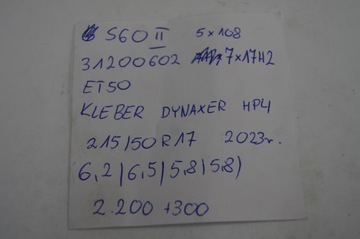 S60 II 5x108
31200602 7x17H2
ET50
KLEBER DYNAXER HP4
215/50R17 2023r.
6,2/6,5/5,8/5,8/
2.200 +300